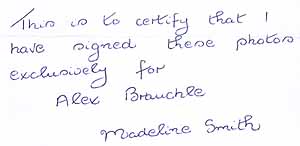 This is to certify that I
have signed these photos
exclusively for
Alex Brauchle
Madeline Smith